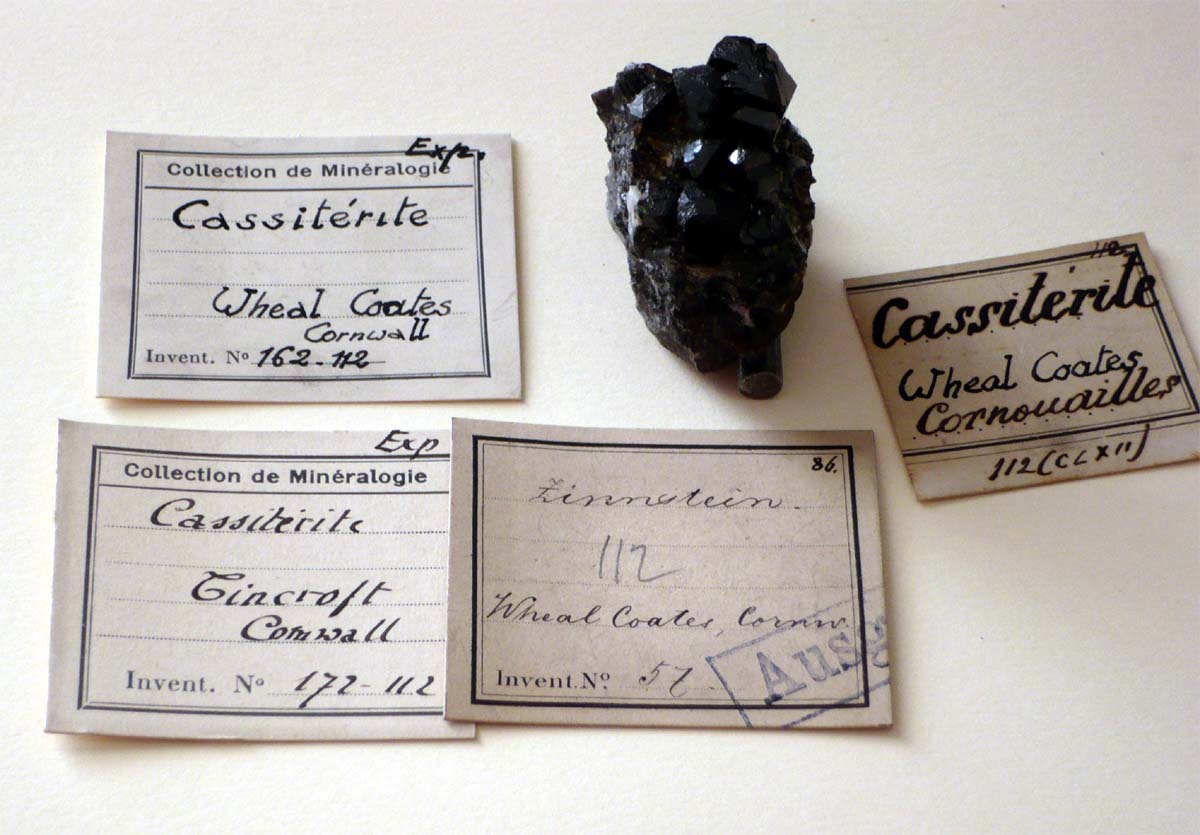 Exp.
Collection de Minéralogie
Cassitérite
Wheal Coates
Cornwall
Invent. No 162-112
112
Cassitérite
Wheal Coates
Cornouailles
112 (CLXII)
Exp
Collection de Minéralogie
Cassitérite
Tincroft
Cornwall
Invent. No 172-112
86.
Zinnstein.
112
Wheal Coates, Cornw.
Invent. No. 57
Ausg